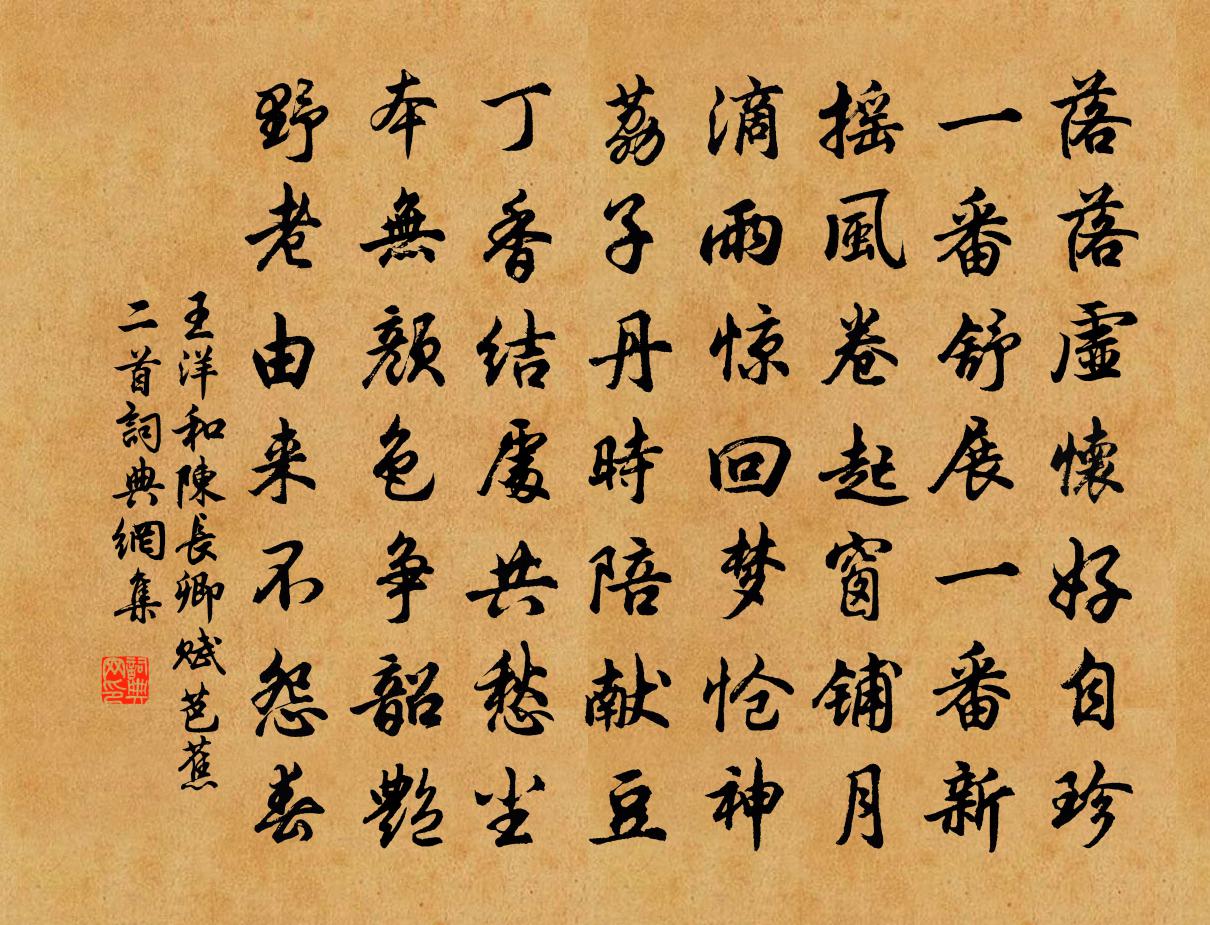 落落虛懷好自珍
一番舒展一番新
摇風卷起窗鋪月
滴雨惊回梦怆神
荔子丹時陪献豆
丁香结處共愁尘
本無顔色争韶艷
野老由来不怨春
王洋和陳長卿賦芭蕉
二首詞典網集
詞典
网印